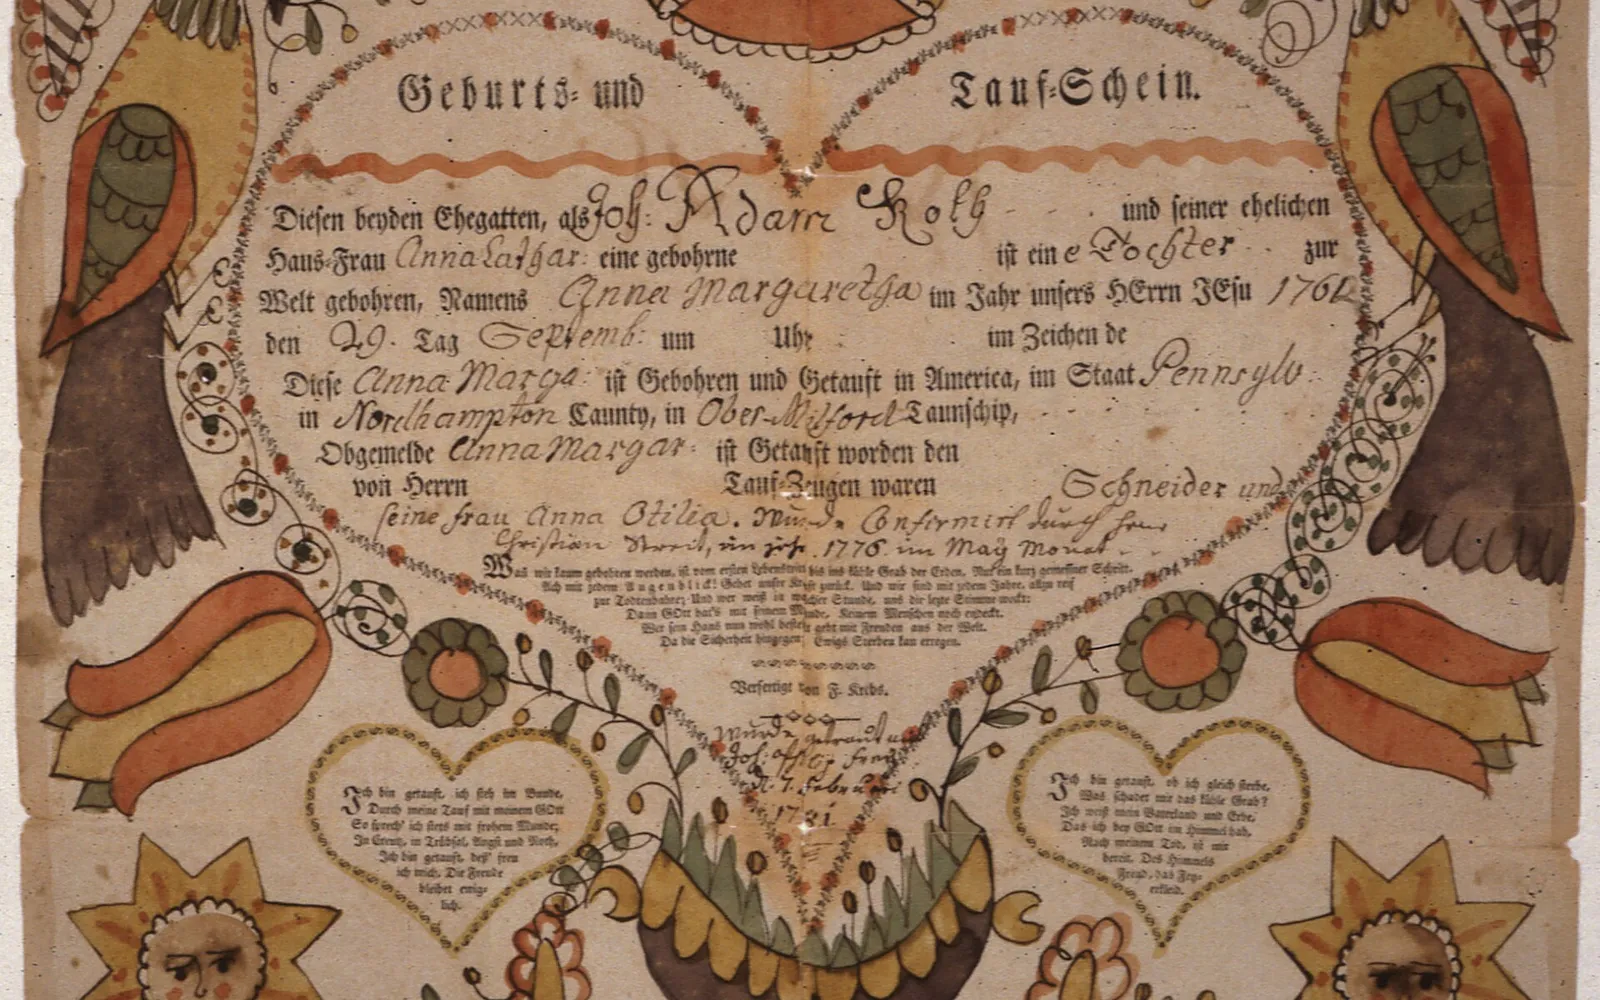 Geburts- und Tauf-Schein.
Diesen beyden Ehegatten, als Joh: Adam Roth und seiner ehelichen
Haus-Frau Anna Cathar: eine gebohrne ist ein e Tochter zur
Welt gebohren, Namens Anna Margaretha im Jahr unsers HErrn JEsu
den 29. Tag Septemb: um Uhr im Zeichen de
Diese Anna Marga: ist Gebohren und Getauft in America, im Staat Pennsylv:
in Nordhampton Caunty, in Ober-Milford Taunschip,
Obgemelde Anna Margar: ist Getauft worden den
von Herrn Tauf-Zeugen waren Schneider und
seine frau Anna Otilia. Wurde Confirmirt durch Herr
Christian Streit, im jahr 1776 im May Monat
Was wir kaum gebohren werden, ist vom ersten Lebenstritt bis ins kühle Grab der Erden, Nur ein kurz gemessner Schritt.
Ach mit jedem Augenblick! Gehet unsre Kraft zurück, Und wir sind mit jedem Jahre, allzu reif
zur Todtenbahre; Und wer weiß in welcher Stunde, uns die lezte Stimme weckt:
Dann GOtt hat's mit seinem Munde, Keinem Menschen noch entdeckt.
Wer sein Haus nun wohl bestellt geht mit Freuden aus der Welt.
Da die Sicherheit hingegen Ewigs Sterben kan erregen.
Verfertigt von F. Krebs.
Wurde getraut
Joh:
1. Februari
Ich bin getauft, ich steh im Bunde,
Durch meine Tauf mit meinem GOtt
So sprech' ich stets mit frohem Munde;
In Creutz, in Trübsal, Angst und Noth,
Ich bin getauft, deß' freu
ich mich, Die Freude
bleibet ewig-
lich.
Ich bin getauft, ob ich gleich sterbe,
Was schadet mir das kühle Grab?
Ich weiß mein Vaterland und Erbe,
Das ich bey GOtt im Himmel hab,
Nach meinem Tod, ist mir
bereit, Des Himmels
Freud, das Fey-
erkleid.